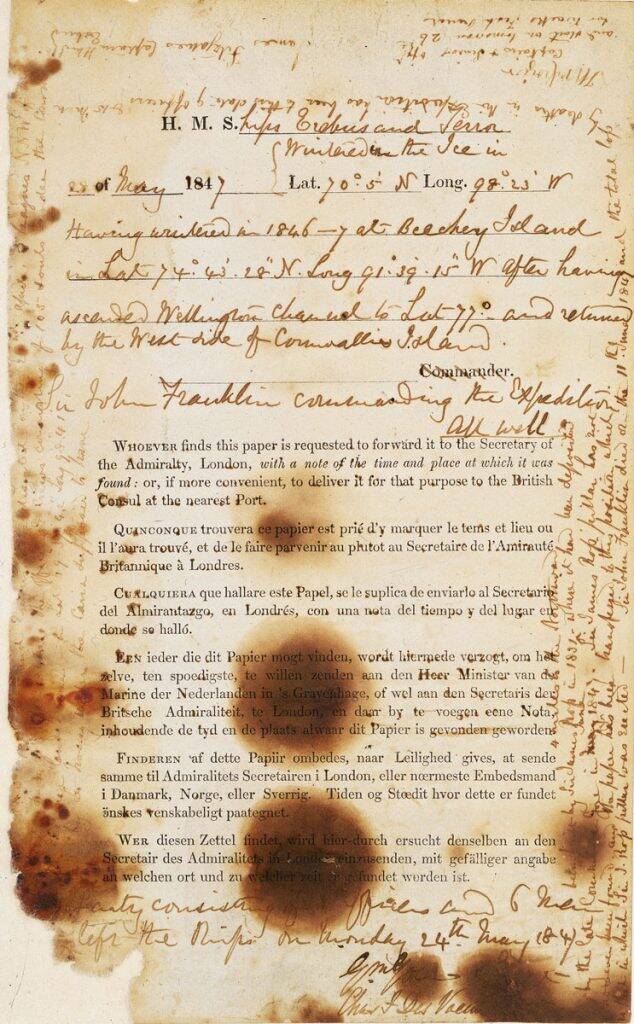 H. M. S. hips Erebus and Terror
Wintered in the Ice in
28 of May 1847 Lat. 70° 5' N Long. 98° 23' W
Having wintered in 1846-7 at Beechey Island
in Lat 74° 43' 28" N. Long 91° 39' 15" W After having
ascended Wellington Channel to Lat 77° and returned
by the West side of Cornwallis Island.
Commander.
Sir John Franklin commanding the Expedition.
All well
WHOEVER finds this paper is requested to forward it to the Secretary of
the Admiralty, London, with a note of the time and place at which it was
found: or, if more convenient, to deliver it for that purpose to the British
Consul at the nearest Port.
QUINCONQUE trouvera ce papier est prié d'y marquer le tems et lieu ou
il l'aura trouvé, et de le faire parvenir au plutot au Secretaire de l'Amirauté
Britannique à Londres.
CUALQUIERA que hallare este Papel, se le suplica de enviarlo al Secretario
del Almirantazgo, en Londrés, con una nota del tiempo y del lugar en
donde se halló.
EEN ieder die dit Papier mogt vinden, wordt hiermede verzogt, om het
zelve, ten spoedigste, te willen zenden aan den Heer Minister van de
Marine der Nederlanden in 's Gravenhage, of wel aan den Secretaris der
Britsche Admiraliteit, te London, en daar by te voegen eene Nota,
inhoudende de tyd en de plaats alwaar dit Papier is gevonden geworden.
FINDEREN af dette Papiir ombedes, naar Leilighed gives, at sende
samme til Admiralitets Secretairen i London, eller nœrmeste Embedsmand
i Danmark, Norge, eller Sverrig. Tiden og Stœdit hvor dette er fundet
önskes venskabeligt paategnet.
WER diesen Zettel findet, wird hier-durch ersucht denselben an den
Secretair des Admiralitets in London einzusenden, mit gefälliger angabe
an welchen ort und zu welcher zeit er gefundet worden ist.
Party consisting of Officers and 6 Men
left the Ships on Monday 24th May 1847
Gm
Chas F Des Voeux
4 miles to the Northward
by Sir James Ross in 1831 where it had been deposited
by the late Commander in June 1847. Sir James Ross' pillar has not
however been found and the paper has been transferred to this position which
is that in which Sir J. Ross pillar was erected — Sir John Franklin died on the 11th June 1847 and the total loss
by deaths in the Expedition has been to this date 9 officers & 15 men
James Fitzjames Captain HMS Erebus
Captain & Senior Offr
and start on tomorrow 26th
for Backs Fish River